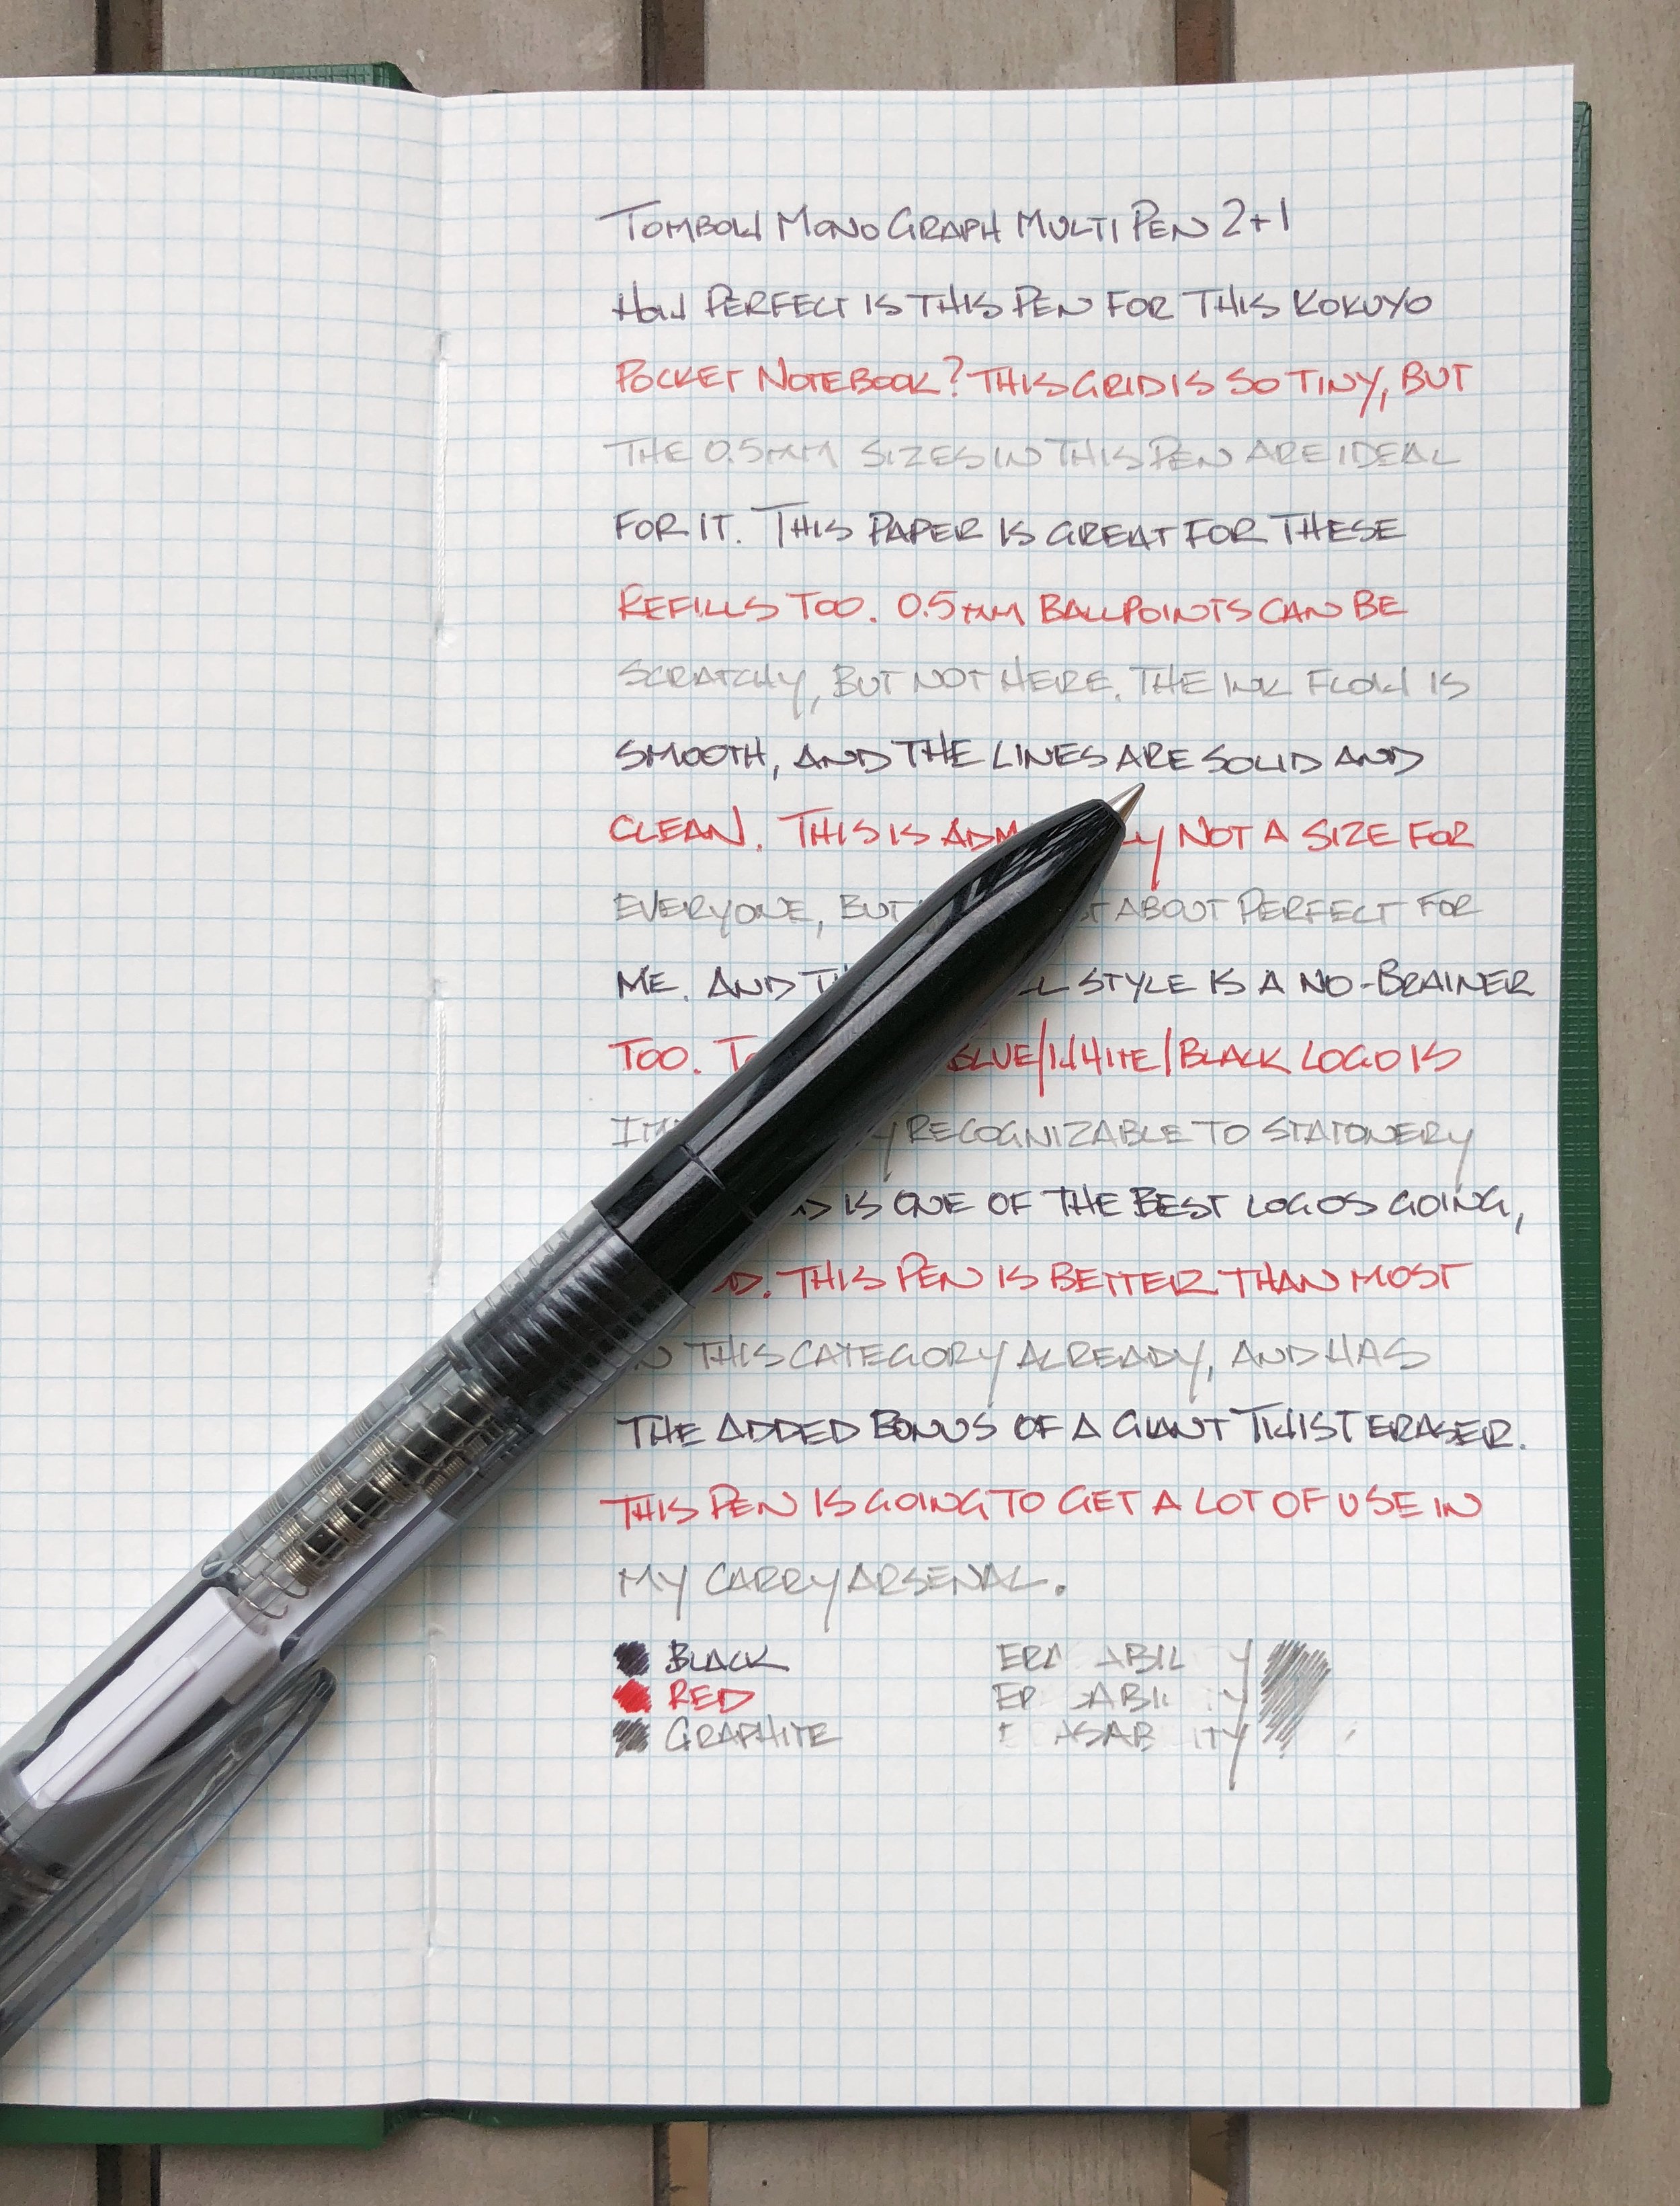 TOMBOW MONO GRAPH MULTI PEN 2+1
HOW PERFECT IS THIS PEN FOR THIS KOKUYO
POCKET NOTEBOOK? THIS GRID IS SO TINY, BUT
THE 0.5MM SIZES IN THIS PEN ARE IDEAL
FOR IT. THIS PAPER IS GREAT FOR THESE
REFILLS TOO. 0.5MM BALLPOINTS CAN BE
SCRATCHY, BUT NOT HERE. THE INK FLOW IS
SMOOTH, AND THE LINES ARE SOLID AND
CLEAN. THIS IS NOT A SIZE FOR
EVERYONE, BUT ABOUT PERFECT FOR
ME. AND STYLE IS A NO-BRAINER
TOO. BLUE/WHITE/BLACK LOGO IS
RECOGNIZABLE TO STATONERY
IS ONE OF THE BEST LOGOS GOING,
THIS PEN IS BETTER THAN MOST
THIS CATEGORY ALREADY, AND HAS
THE ADDED BONUS OF A GIANT TWIST ERASER.
THIS PEN IS GOING TO GET A LOT OF USE IN
MY CARRY ARSENAL.
BLACK
RED
GRAPHITE